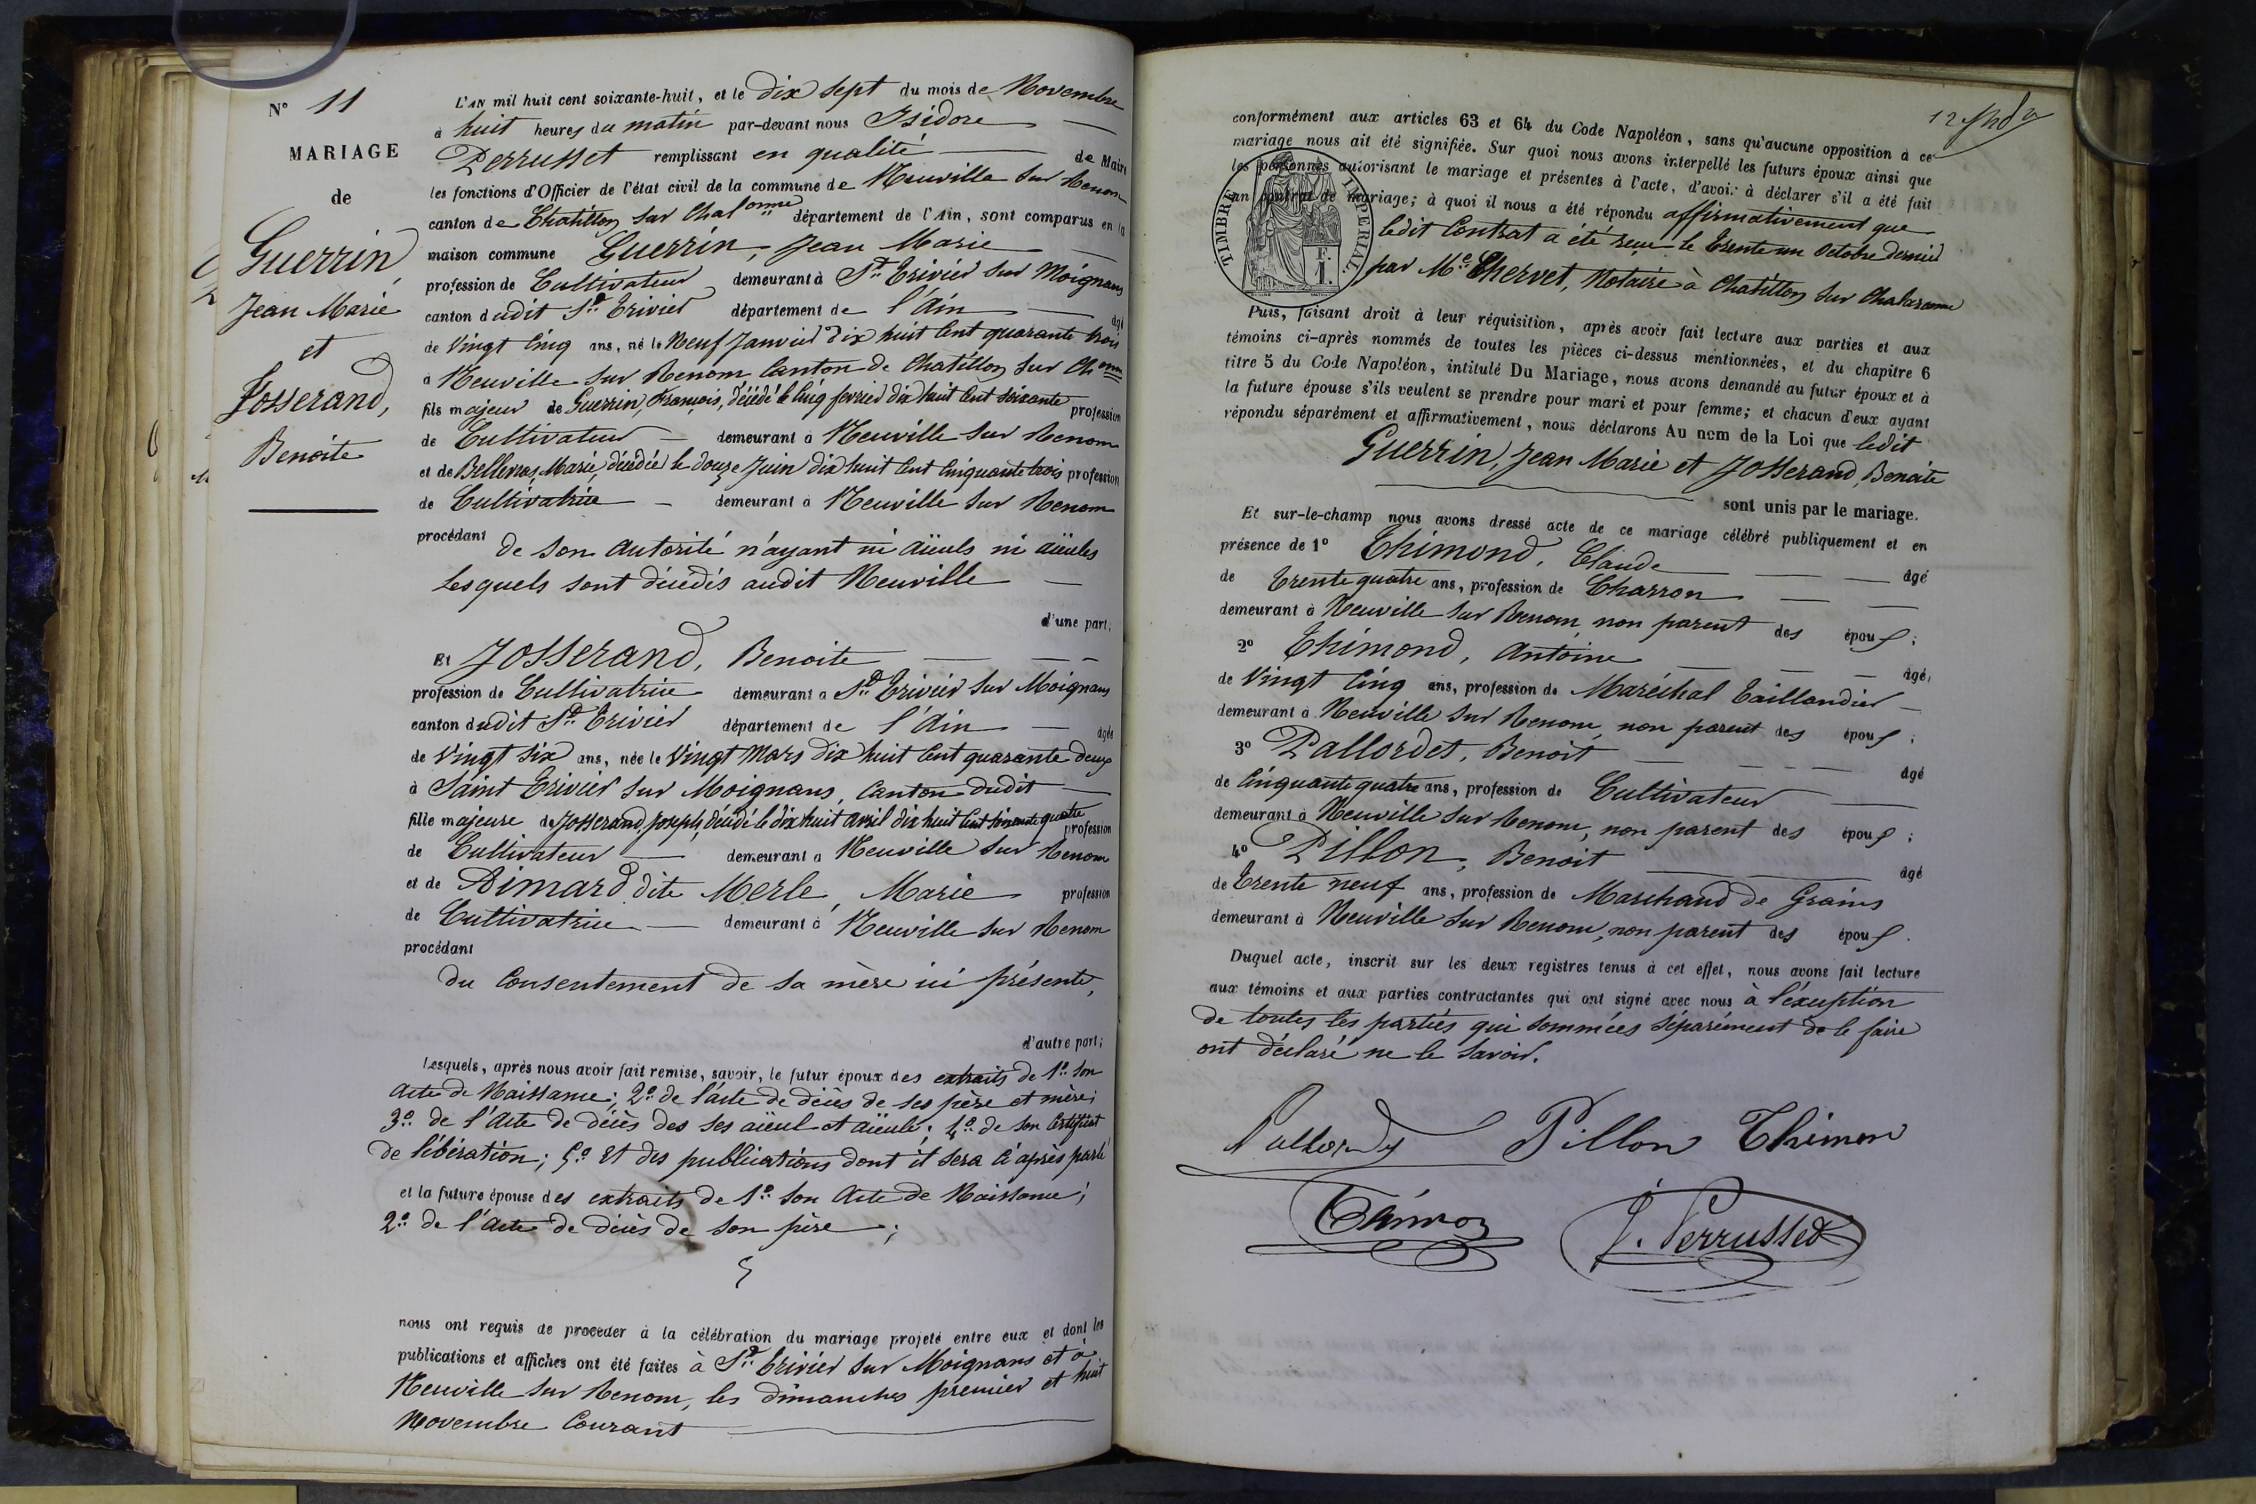 N° 11
MARIAGE
de
Guerrin,
Jean Marie
et
Josserand,
Benoite
L'AN mil huit cent soixante-huit, et le dix sept du mois de Novembre
à huit heures du matin par-devant nous Isidore
Perrusset remplissant en qualité de Maire
les fonctions d'Officier de l'état civil de la commune de Neuville sur Renom
canton de Chatillon sur Chalonne département de l'Ain, sont comparus en la
maison commune Guerrin, Jean Marie
profession de Cultivateur demeurant à St Trivier sur Moignans
canton dudit St Trivier département de l'Ain âgé
de Vingt Cinq ans, né le Neuf Janvier dix huit Cent quarante trois
à Neuville sur Renom Canton de Chatillon sur Chonne
fils majeur de Guerrin, François, décédé le Cinq fevrier dix huit Cent soixante profession
de Cultivateur demeurant à Neuville sur Renom
et de Marie, décédée le douze Juin dix huit Cent Cinquante trois profession
de Cultivatrice demeurant à Neuville sur Renom
procédant de son autorité n'ayant ni aïeuls ni aïeules
Lesquels sont décédés audit Neuville
d'une part;
Et Josserand, Benoite
profession de Cultivatrice demeurant à St Trivier sur Moignans
canton dudit St Trivier département de l'Ain âgée
de Vingt Six ans, née le Vingt Mars dix huit Cent quarante deux
à Saint Trivier sur Moignans, Canton dudit
fille majeure de Josserand, Joseph, décédé le dix huit avril dix huit Cent soixante quatre profession
de Cultivateur demeurant à Neuville sur Renom
et de Aimard dite Merle, Marie profession
de Cultivatrice demeurant à Neuville sur Renom
procédant
du Consentement de sa mère ici présente,
d'autre part;
Lesquels, après nous avoir fait remise, savoir, le futur époux des extraits de 1° son
Acte de Naissance; 2° de l'acte de décès de ses père et mère;
3° de l'Acte de décès des ses aïeul et aïeule; 4° de son Certificat
de libération; 5° Et des publications dont il sera ci après parlé
et la future épouse des extraits de 1° son Acte de Naissance;
2° de l'Acte de décès de son père;
nous ont requis de procéder à la célébration du mariage projeté entre eux et dont les
publications et affiches ont été faites à St Trivier sur Moignans et à
Neuville sur Renom, les dimanches premier et huit
Novembre Courant
12
conformément aux articles 63 et 64 du Code Napoléon, sans qu'aucune opposition à ce
mariage nous ait été signifiée. Sur quoi nous avons interpellé les futurs époux ainsi que
les personnes autorisant le mariage et présentes à l'acte, d'avoir à déclarer s'il a été fait
un contrat de mariage; à quoi il nous a été répondu affirmativement que
ledit Contrat a été reçu le Trente un Octobre dernier
par Me Chervet, Notaire à Chatillon sur Chalaronne
TIMBRE IMPERIAL.
F.
1.
Puis, faisant droit à leur réquisition, après avoir fait lecture aux parties et aux
témoins ci-après nommés de toutes les pièces ci-dessus mentionnées, et du chapitre 6
titre 5 du Code Napoléon, intitulé Du Mariage, nous avons demandé au futur époux et à
la future épouse s'ils veulent se prendre pour mari et pour femme; et chacun d'eux ayant
répondu séparément et affirmativement, nous déclarons Au nom de la Loi que ledit
Guerrin, Jean Marie et Josserand, Benoite
sont unis par le mariage.
Et sur-le-champ nous avons dressé acte de ce mariage célébré publiquement et en
présence de 1° Thimond, Claude âgé
de Trente quatre ans, profession de Charron
demeurant à Neuville sur Renom, non parent des époux;
2° Thimond, Antoine âgé
de Vingt Cinq ans, profession de Maréchal Taillandier
demeurant à Neuville sur Renom, non parent des époux;
3° Pallordet, Benoit âgé
de Cinquante quatre ans, profession de Cultivateur
demeurant à Neuville sur Renom, non parent des époux;
4° Pillon, Benoit âgé
de Trente neuf ans, profession de Marchand de Grains
demeurant à Neuville sur Renom, non parent des époux.
Duquel acte, inscrit sur les deux registres tenus à cet effet, nous avons fait lecture
aux témoins et aux parties contractantes qui ont signé avec nous à l'exception
de toutes les parties qui sommées séparément de le faire
ont déclaré ne le savoir.
Pillon Thimon
J. Perrusset